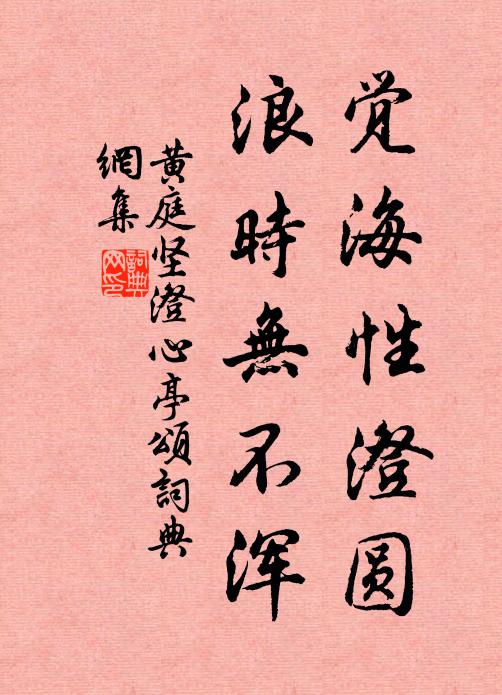 觉海性澄圆
浪時無不浑
黄庭坚澄心亭頌詞典
網集
詞典
网印